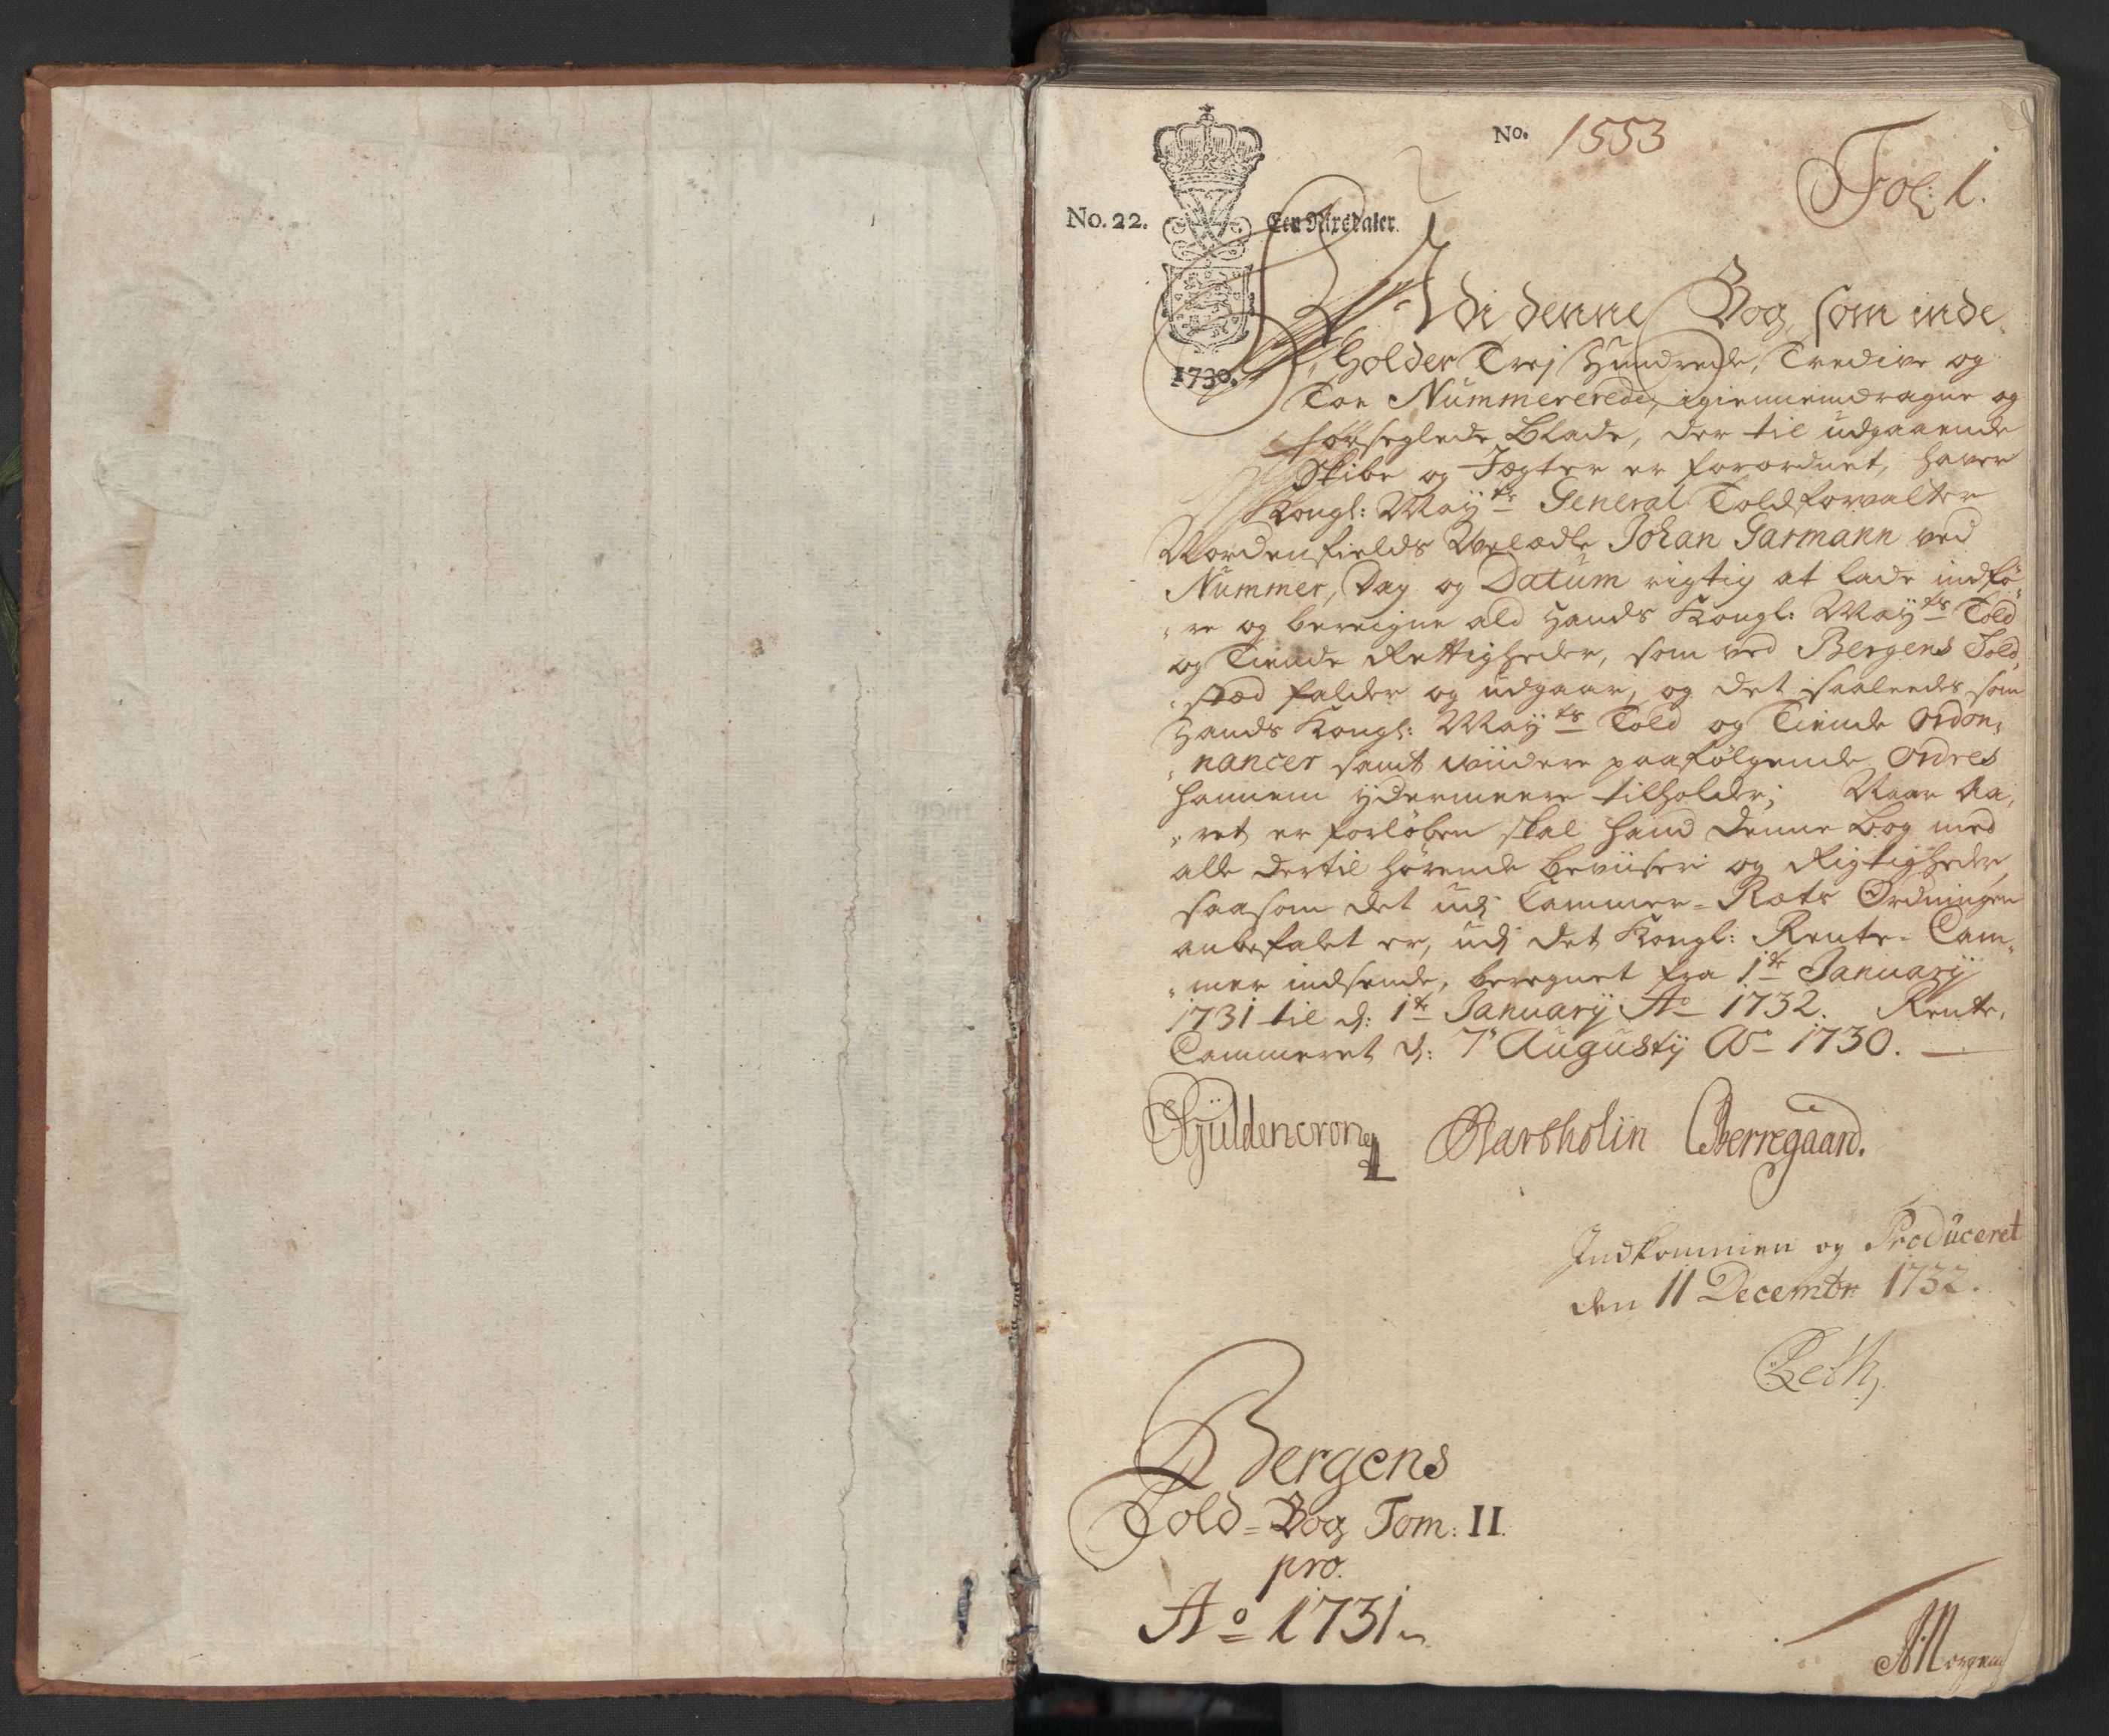 No. 1553
Fol: 1.
No. 22.
Een Rixsdaler.
1730.
Udi denne Bog, som inde„
„holder Trej Hundrede, Tredive og
Toe Nummererede, igiennemdragne og
forseglede Blade, der til udgaaende
Skibe og Jægter er forordnet, haver
Kongl: Mayts General Toldforvalter
Nordenfields Welædle Johan Garmann ved
Nummer, Dag og Datum rigtig at lade indfø„
„re og bereigne ald Hands Kongl: Mayts Told
og Tiende Rettigheder, som ved Bergens Told„
„stæd falder og udgaar, og det saaleedes som
Hands Kongl: Mayts Told og Tiende Ordon„
„nancer samt widere paafølgende Ordres
hannem ydermeere tilholder; Naar Aa„
„ret er forløben skal hand denne Bog med
alle dertil hørende Beviiser og Rigtigheder,
saasom det udj Cammer-Rets Ordningen
anbefalet er, udj det Kongl: Rente-Cam„
„mer indsende, beregnet fra 1te Januarij
1731 til d: 1te Januarij Ao 1732. Rente„
Cammeret d: 7 Augustij Ao 1730.
Gÿldencrone Bartholin Berregaard.
Indkommen og Produceret
den 11 Decembr 1732.
Bergens
Told-Bog Tom: II.
pro.
Ao 1731.